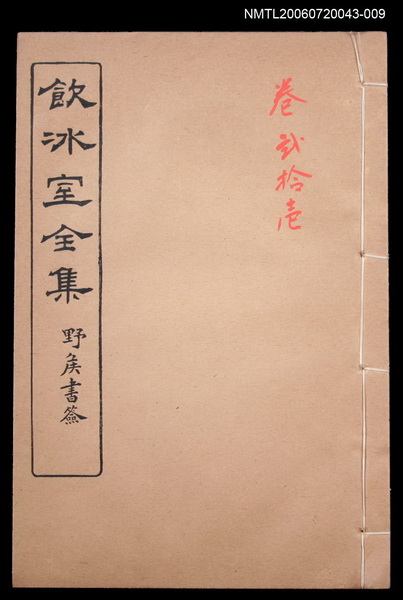 NMTL20060720043-009
卷貳拾壱
飲冰室全集
野矦書簽